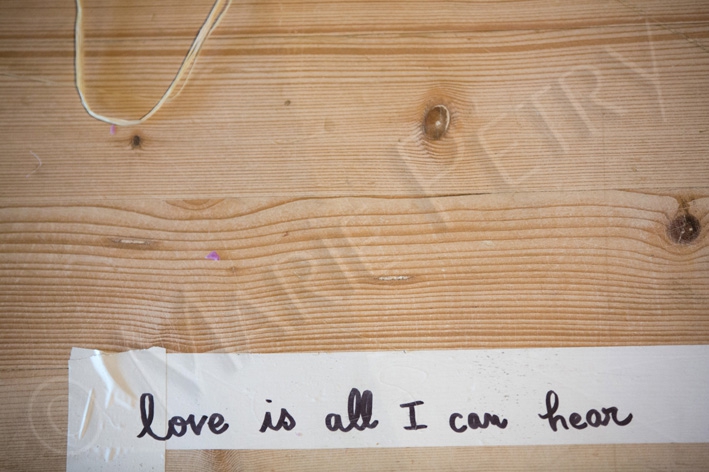 love is all I can hear
© MARIE PETRY